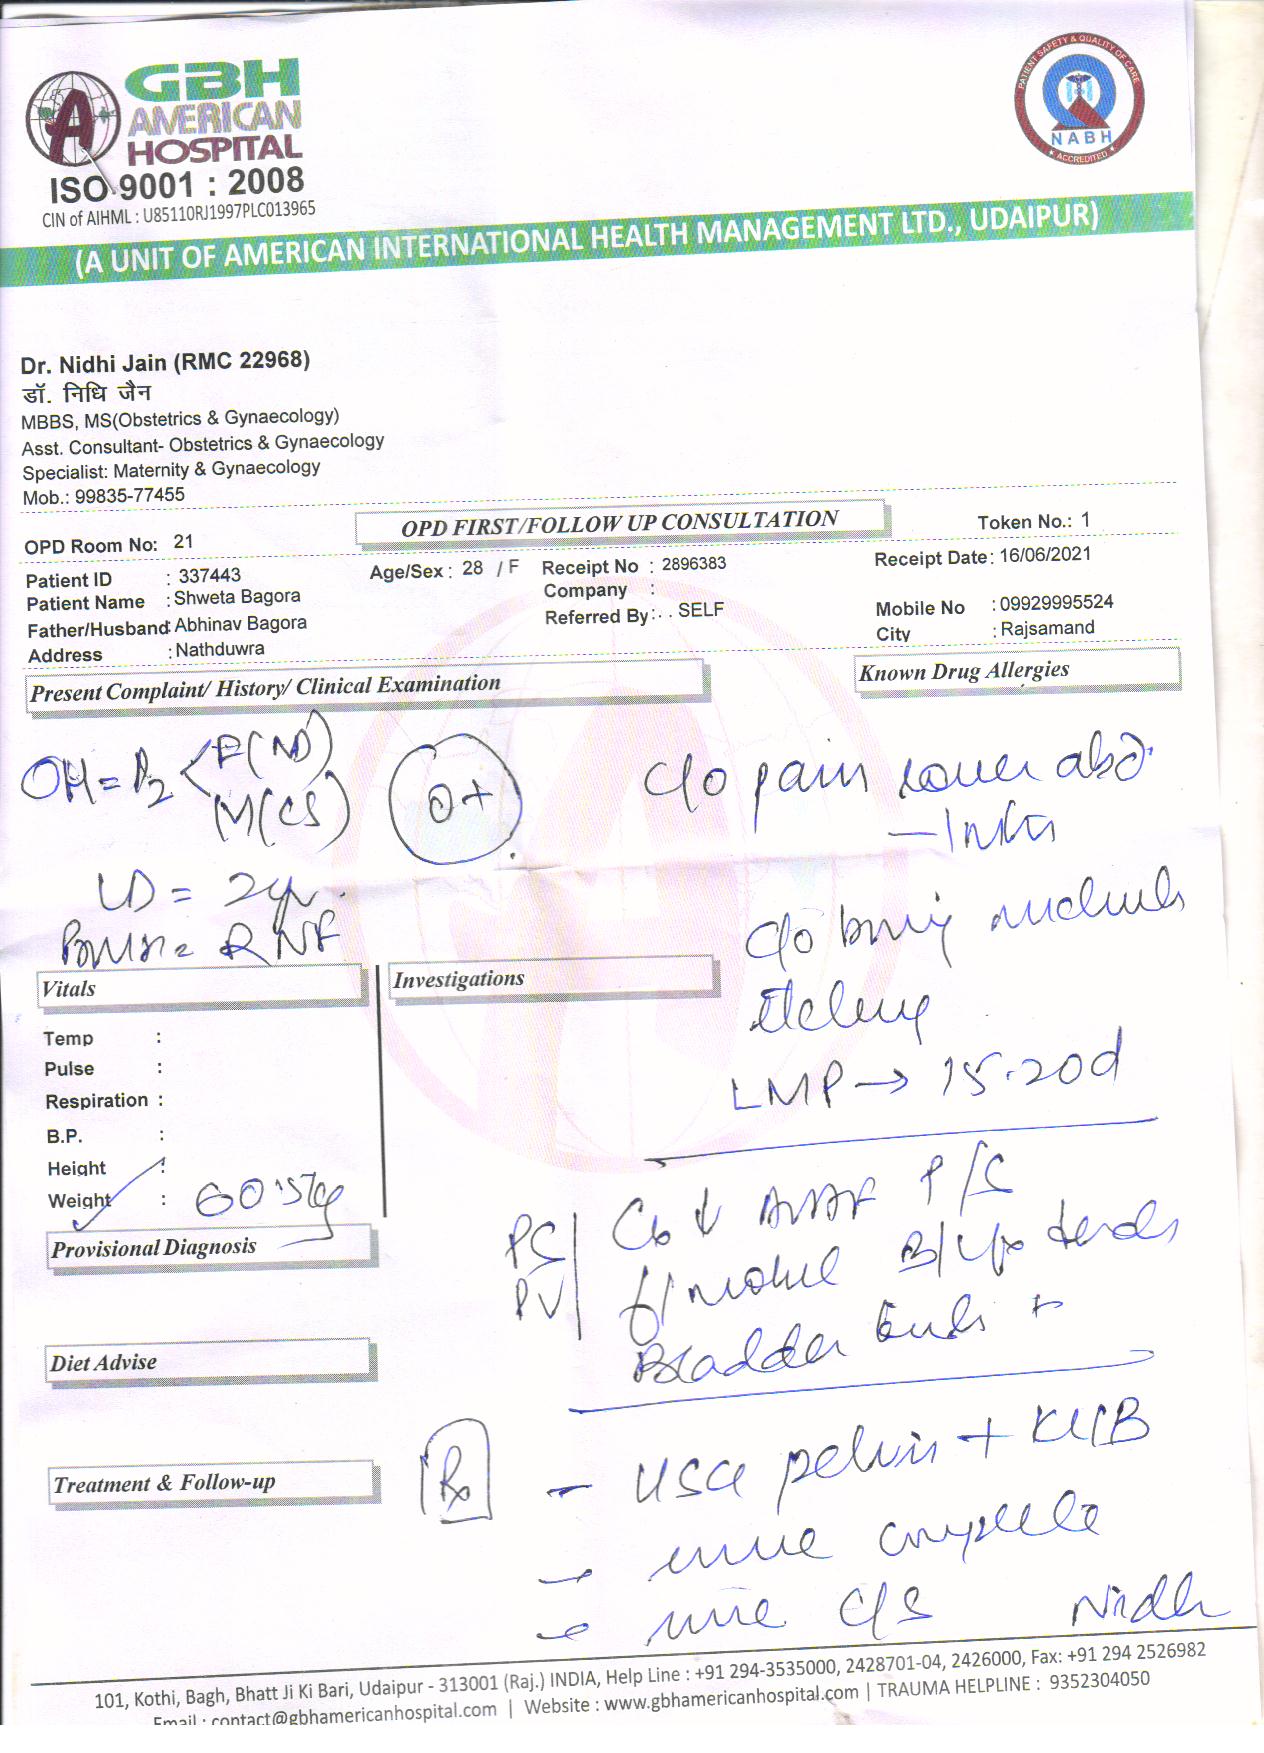 GBH
AMERICAN
HOSPITAL
ISO 9001 : 2008
CIN of AIHML : U85110RJ1997PLC013965
PATIENT SAFETY & QUALITY OF CARE
NABH
ACCREDITED
(A UNIT OF AMERICAN INTERNATIONAL HEALTH MANAGEMENT LTD., UDAIPUR)
Dr. Nidhi Jain (RMC 22968)
डॉ. निधि जैन
MBBS, MS(Obstetrics & Gynaecology)
Asst. Consultant- Obstetrics & Gynaecology
Specialist: Maternity & Gynaecology
Mob.: 99835-77455
OPD Room No: 21 OPD FIRST/FOLLOW UP CONSULTATION Token No.: 1
Patient ID : 337443 Age/Sex : 28 / F Receipt No : 2896383 Receipt Date: 16/06/2021
Patient Name : Shweta Bagora Company :
Father/Husband: Abhinav Bagora Referred By: . . SELF Mobile No : 09929995524
Address : Nathduwra City : Rajsamand
Present Complaint/ History/ Clinical Examination Known Drug Allergies
OH = P2 < F(ND)
M(CS)
O+
c/o pain lower abd.
LD = 2yr.
c/o burning
RNF
itching
LMP → 15-20d
Vitals
Investigations
Temp :
Pulse :
Respiration :
B.P. :
Height :
Weight : 60.5kg
Provisional Diagnosis
PS/PV
P/S
B/L
Bladder +
Diet Advise
Treatment & Follow-up
Rx
- USG pelvis + KUB
- urine complete
- urine C/S
Nidhi
101, Kothi, Bagh, Bhatt Ji Ki Bari, Udaipur - 313001 (Raj.) INDIA, Help Line : +91 294-3535000, 2428701-04, 2426000, Fax: +91 294 2526982
Email : contact@gbhamericanhospital.com | Website : www.gbhamericanhospital.com | TRAUMA HELPLINE : 9352304050